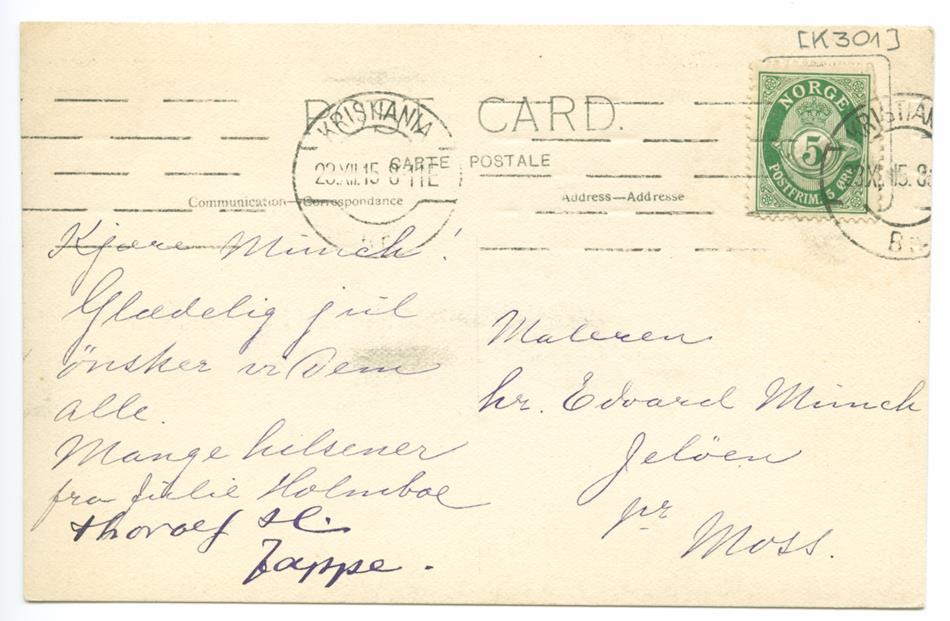 [K301]
POST CARD.
CARTE POSTALE
Communication—Correspondance
Address—Addresse
NORGE
5
POSTFRIM. 5 ØRE
KRISTIANIA
23.XII.15 8-11E
KRISTIAN
Kjære Munch!
Glædelig jul
ønsker vi Dem
alle.
Mange hilsener
fra Julie Holmboe
Thorolf H.
Jappe.
Maleren
hr. Edvard Munch
Jelöen
pr
Moss.